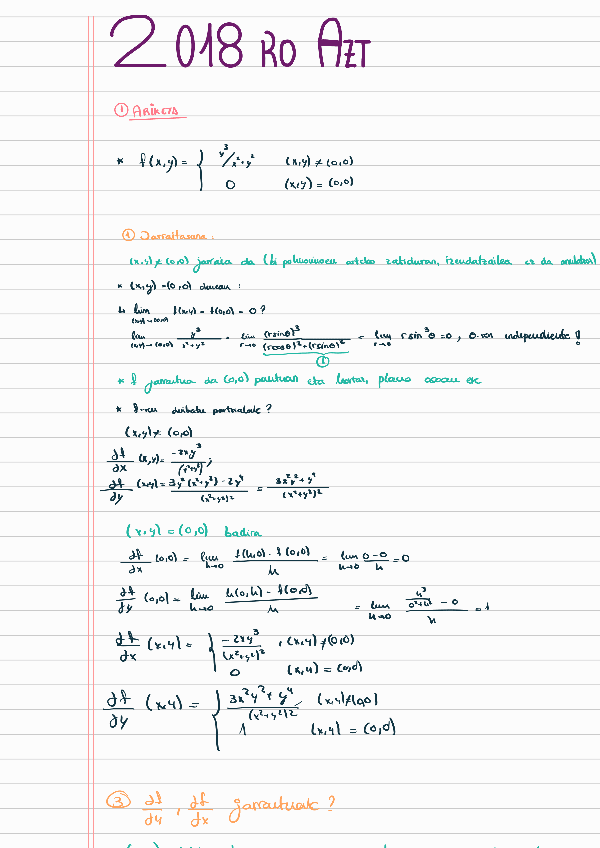 2018 RO AZT
① ARIKETA
* f(x,y) = { y³/x²+y² (x,y) ≠ (0,0)
0 (x,y) = (0,0)
① Jarraitasuna:
(x,y) ≠ (0,0) jarraia da (bi polinomoen arteko zatiduran, izendatzailea ez da anulatzen)
* (x,y) = (0,0) denean:
↳ lim (x,y)→(0,0) f(x,y) = f(0,0) = 0?
lim (x,y)→(0,0) y³/x²+y² = lim r→0 (r sinθ)³/(r cosθ)²+(r sinθ)² = lim r→0 r sin³θ = 0, θ-ren independiente!
①
* f jarraitua da (0,0) puntuan eta beraz, plano osoan ere
* f-ren deribatu partzialak?
(x,y) ≠ (0,0)
∂f/∂x (x,y) = -2xy³/(x²+y²)²;
∂f/∂y (x,y) = 3y²(x²+y²)-2y⁴/(x²+y²)² = 3x²y²+y⁴/(x²+y²)²
(x,y) = (0,0) badira
∂f/∂x (0,0) = lim h→0 f(h,0) - f(0,0)/h = lim h→0 0-0/h = 0
∂f/∂y (0,0) = lim h→0 f(0,h) - f(0,0)/h = lim h→0 h³/0²+h² - 0/h = 1
∂f/∂x (x,y) = { -2xy³/(x²+y²)², (x,y) ≠ (0,0)
0 (x,y) = (0,0)
∂f/∂y (x,y) = { 3x²y²+y⁴/(x²+y²)², (x,y) ≠ (0,0)
1 (x,y) = (0,0)
③ ∂f/∂y, ∂f/∂x jarraituak?